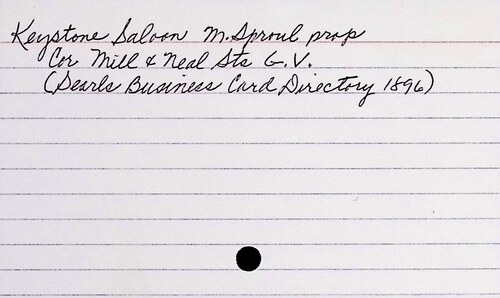 Keystone Saloon M. Sproul prop
Cor Mill & Neal Sts G.V.
(Searls Business Card Directory 1896)